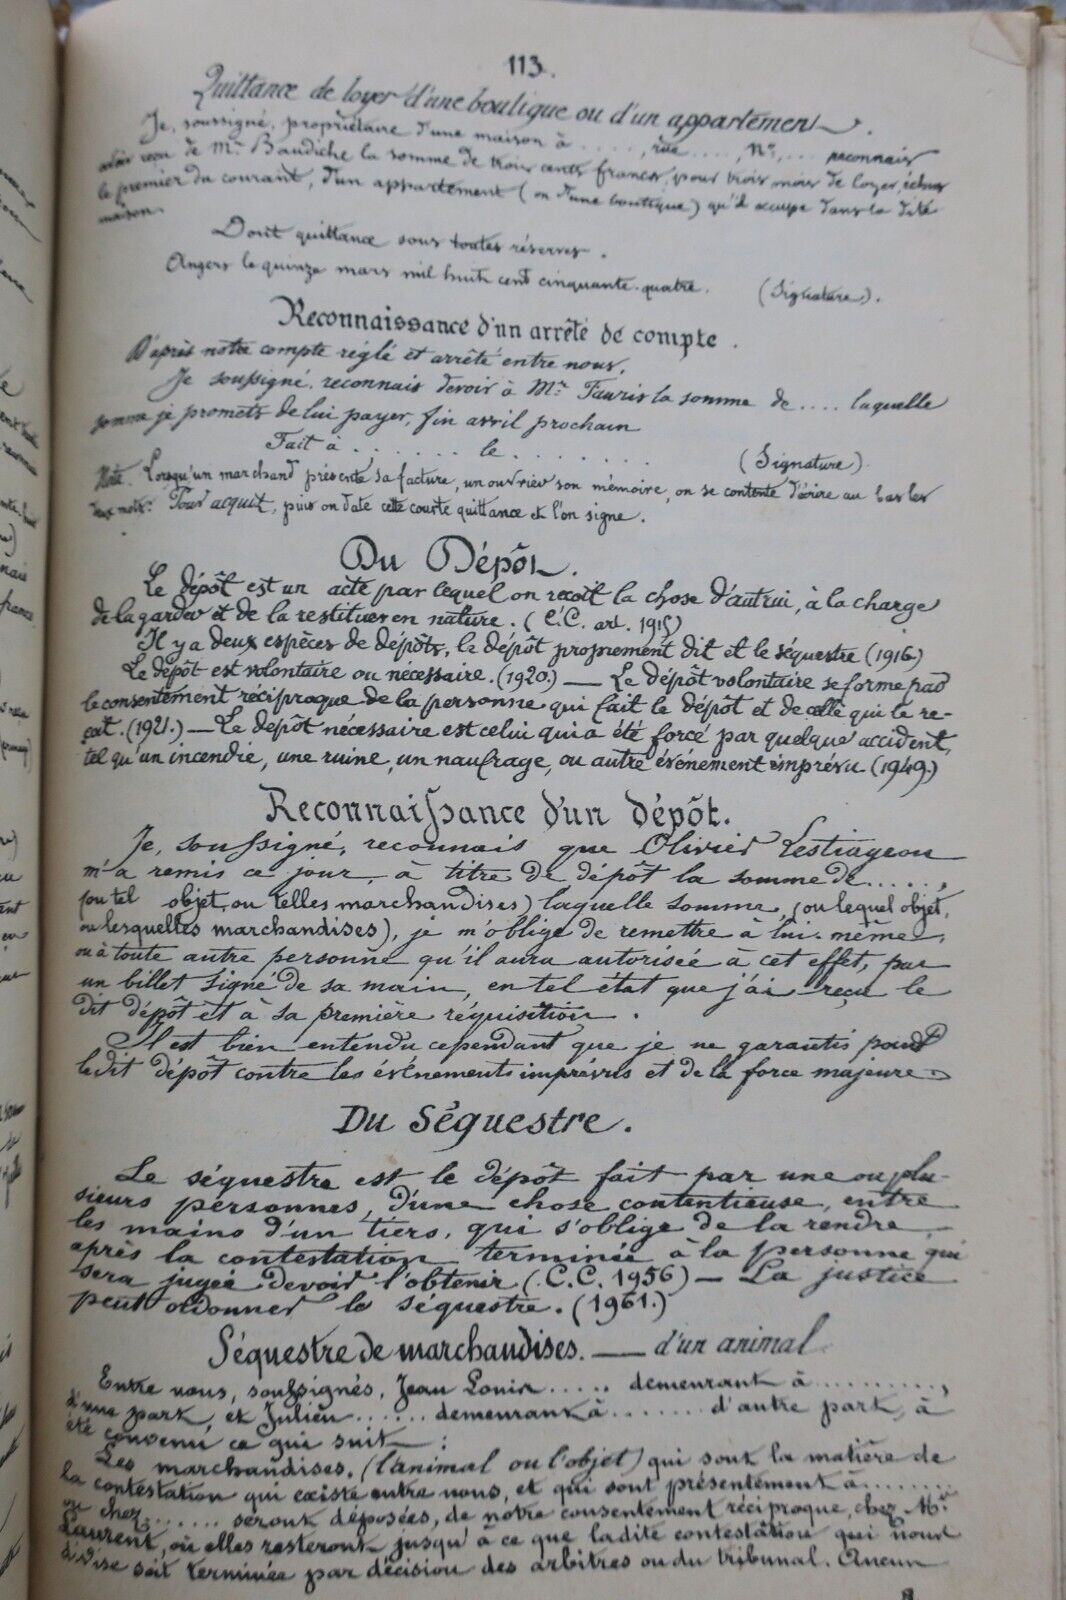 113.
Quittance de loyer d'une boutique ou d'un appartement.
Je, soussigné, propriétaire d'une maison à ...., rue ...., N°. ... reconnais
avoir reçu de Mr Baudiche la somme de trois cents francs, pour trois mois de loyer, échus
le premier du courant, d'un appartement (ou d'une boutique) qu'il occupe dans la dite
maison.
Dont quittance sous toutes réserves.
Angers le quinze mars mil huit cent cinquante-quatre. (Signature).
Reconnaissance d'un arrêté de compte.
D'après notre compte réglé et arrêté entre nous,
Je soussigné, reconnais devoir à Mr Fauris la somme de .... laquelle
somme je promets de lui payer, fin avril prochain
Fait à ....... le ........ (Signature).
Note. Lorsqu'un marchand présente sa facture, un ouvrier son mémoire, on se contente d'écrire au bas les
deux mots: Pour acquit, puis on date cette courte quittance et l'on signe.
Du Dépôt.
Le dépôt est un acte par lequel on reçoit la chose d'autrui, à la charge
de la garder et de la restituer en nature. (C.C. art. 1915)
Il y a deux espèces de dépôts, le dépôt proprement dit et le séquestre (1916)
Le dépôt est volontaire ou nécessaire. (1920.) — Le dépôt volontaire se forme par
le consentement réciproque de la personne qui fait le dépôt et de celle qui le re-
çoit. (1921.) — Le dépôt nécessaire est celui qui a été forcé par quelque accident,
tel qu'un incendie, une ruine, un naufrage, ou autre événement imprévu (1949.)
Reconnaissance d'un dépôt.
Je, soussigné, reconnais que Olivier Lestiageon
m'a remis ce jour, à titre de dépôt la somme de ......,
(ou tel objet, ou telles marchandises) laquelle somme, (ou lequel objet,
ou lesquelles marchandises), je m'oblige de remettre à lui-même,
ou à toute autre personne qu'il aura autorisée à cet effet, par
un billet signé de sa main, en tel état que j'ai reçu le
dit dépôt et à sa première réquisition.
Il est bien entendu cependant que je ne garantis point
le dit dépôt contre les événements imprévus et de la force majeure
Du Séquestre.
Le séquestre est le dépôt fait par une ou plu-
sieurs personnes, d'une chose contentieuse, entre
les mains d'un tiers, qui s'oblige de la rendre
après la contestation terminée à la personne qui
sera jugée devoir l'obtenir (C.C. 1956) — La justice
peut ordonner le séquestre. (1961.)
Séquestre de marchandises. — d'un animal
Entre nous, soussignés, Jean Louis ..... demeurant à ..........,
d'une part, et Julien ...... demeurant à ....... d'autre part, à
été convenu ce qui suit :
Les marchandises, (l'animal ou l'objet) qui sont la matière de
la contestation qui existe entre nous, et qui sont présentement à .......
ou chez ....... seront déposées, de notre consentement réciproque, chez Mr
Laurent, où elles resteront jusqu'à ce que ladite contestation qui nous
divise soit terminée par décision des arbitres ou du tribunal. Aucun
8